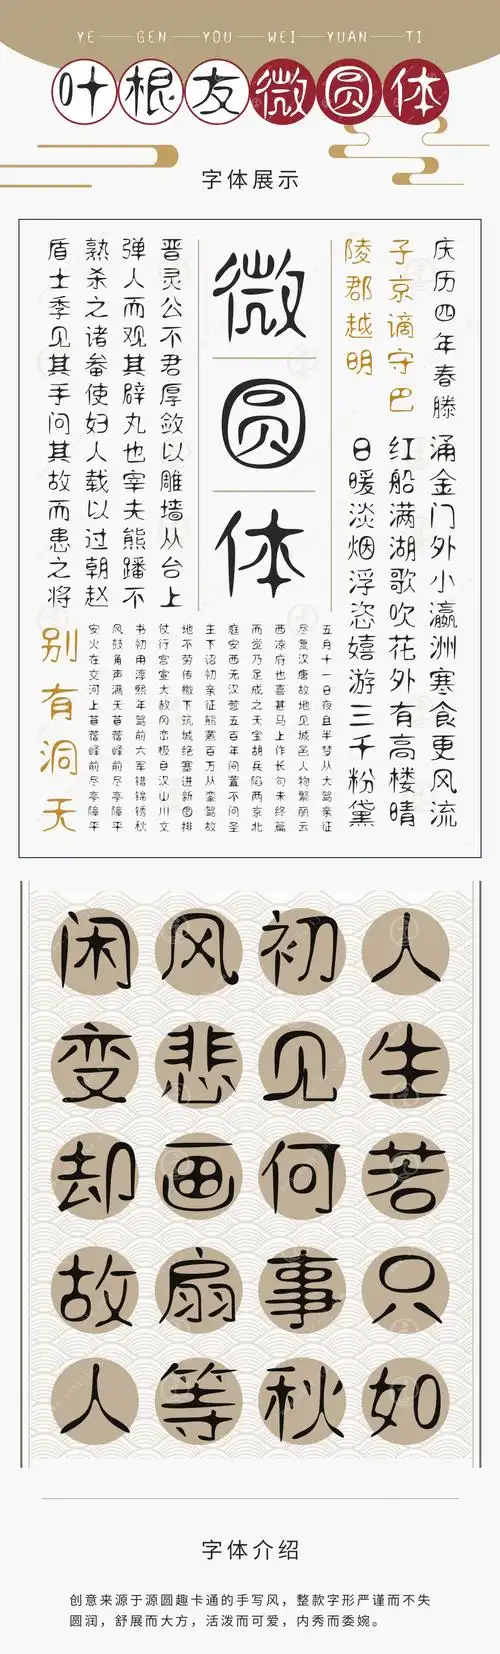 YE——GEN——YOU——WEI——YUAN——TI
叶根友微圆体
字体展示
庆历四年春滕
子京谪守巴
陵郡越明
涌金门外小瀛洲寒食更风流
红船满湖歌吹花外有高楼晴
日暖淡烟浮恣嬉游三千粉黛
微圆体
晋灵公不君厚敛以雕墙从台上
弹人而观其辟丸也宰夫熊蹯不
熟杀之诸畚使妇人载以过朝赵
盾士季见其手问其故而患之将
五月十一日夜且半梦从大驾亲征
尽复汉唐故地见城邑人物繁丽云
西凉府也喜甚马上作长句未终篇
而觉乃足成之天宝胡兵陷两京北
庭安西无汉营五百年间置不问圣
主下诏初亲征熊罴百万从銮驾故
地不劳传檄下筑城绝塞进新图排
仗行宫宣大赦冈峦极目汉山川文
书初用淳熙年驾前六军错锦绣秋
风鼓角声满天苜蓿峰前尽亭障平
安火在交河上苜蓿峰前尽亭障平
别有洞天
人生若只如
初见何事秋
风悲画扇等
闲变却故人
字体介绍
创意来源于源圆趣卡通的手写风，整款字形严谨而不失
圆润，舒展而大方，活泼而可爱，内秀而委婉。